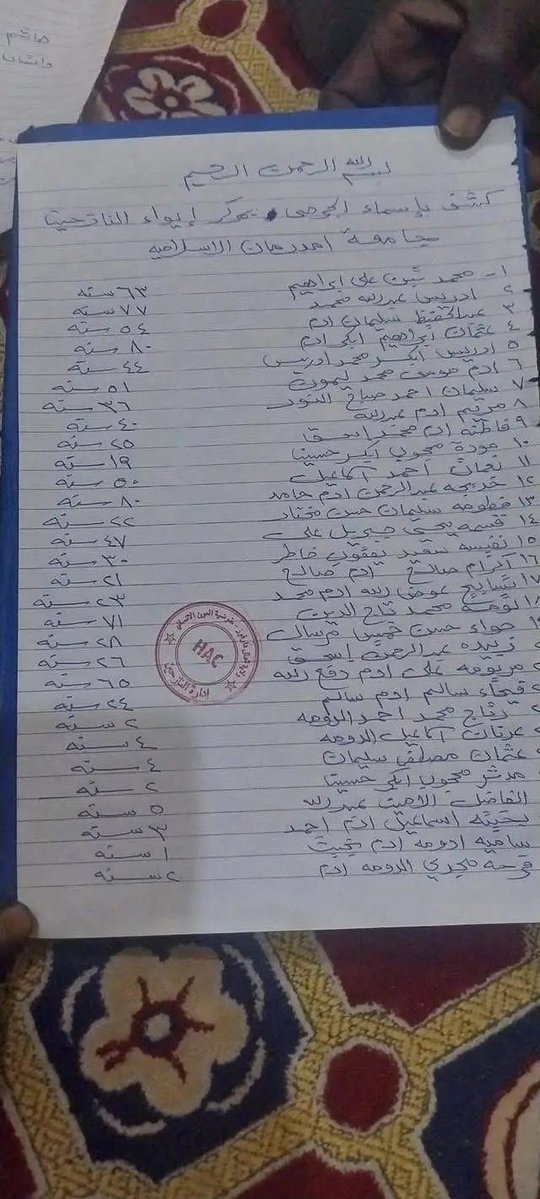 بسم الله الرحمن الرحيم
كشف بإسماء المرضى بمركز إيواء النازحين
جامعة امدرمان الاسلاميه
١- محمد علي ابراهيم ٦٣ سنه
٢ ادريس عبدالله محمد ٧٧ سنه
٣ عبدالحفيظ سليمان ادم ٥٤ سنه
٤ عثمان ابراهيم ابكر ادم ٨٠ سنه
٥ ادريس ابكر محمد ادريس ٤٤ سنه
٦ ادم محمد ٥١ سنه
٧ سليمان احمد صباح النور ٣٦ سنه
٨ مريم ادم عبدالله ٤٠ سنه
٩ فاطمه ادم محمد اسحق ٢٥ سنه
١٠ ابكر ١٩ سنه
١١ احمد ٥٠ سنه
١٢ خديجه عبدالرحمن ادم حامد ٨٠ سنه
١٣ فطومه سليمان حسن مختار ٢٢ سنه
١٤ قسمه يحي جبريل علي ٤٧ سنه
١٥ نفيسه سعيد يعقوب خاطر ٣٠ سنه
١٦ اكرام صالح ادم صالح ٢١ سنه
١٧ تسابيح عوض الله ادم محمد ٢٣ سنه
١٨ محمد تاج الدين ٧١ سنه
حواء حسن خميس مرسال ٢٨ سنه
زبيده عبدالرحمن اسحق ٢٦ سنه
مريومه علي ادم دفع الله ٦٥ سنه
سالم ادم سالم ٢٤ سنه
محمد احمد الدومه ٢ سنه
الدومه ٤ سنه
عثمان مصطفى سليمان ٤ سنه
مدثر ابكر ٢ سنه
الفاضل الامين عبدالله ٥ سنه
بخيته اسماعيل ادم احمد ٣ سنه
ساميه ادومه ادم بخيت ١ سنه
فرحه مجدي الدومه ادم ٢ سنه
HAC
إدارة النازحين